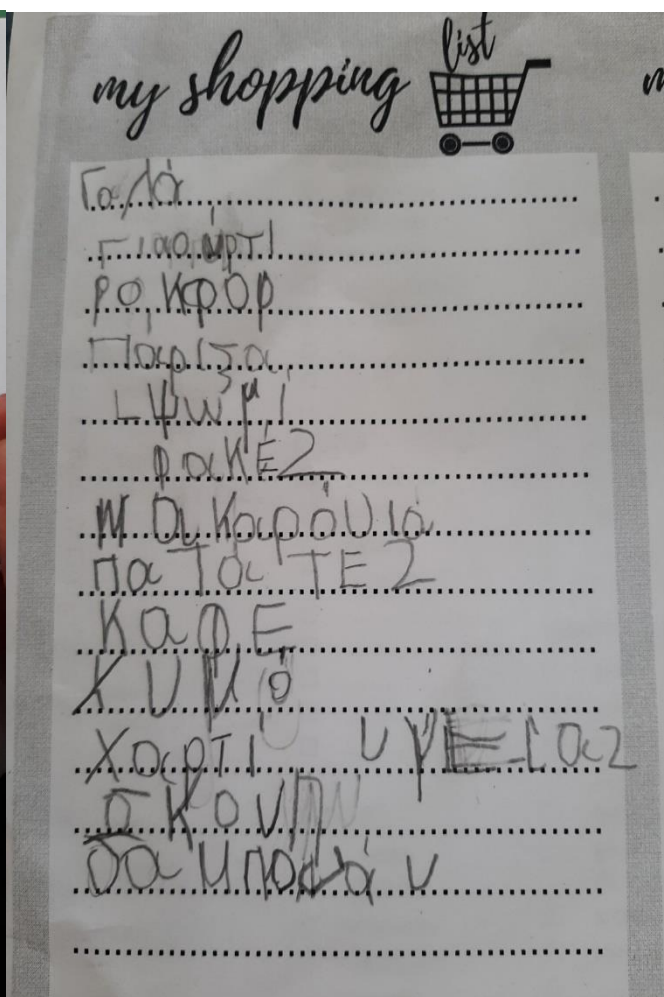 my shopping list
Γαλά
Γιαούρτι
ρο,κφόρ
Πάριζα
ψωμί
φακέ2
Μακαρόνια
παΤαΤΕ2
καφΕ
χυμό
χαρτί υγΕίας
σκουπ
σαμπουάν